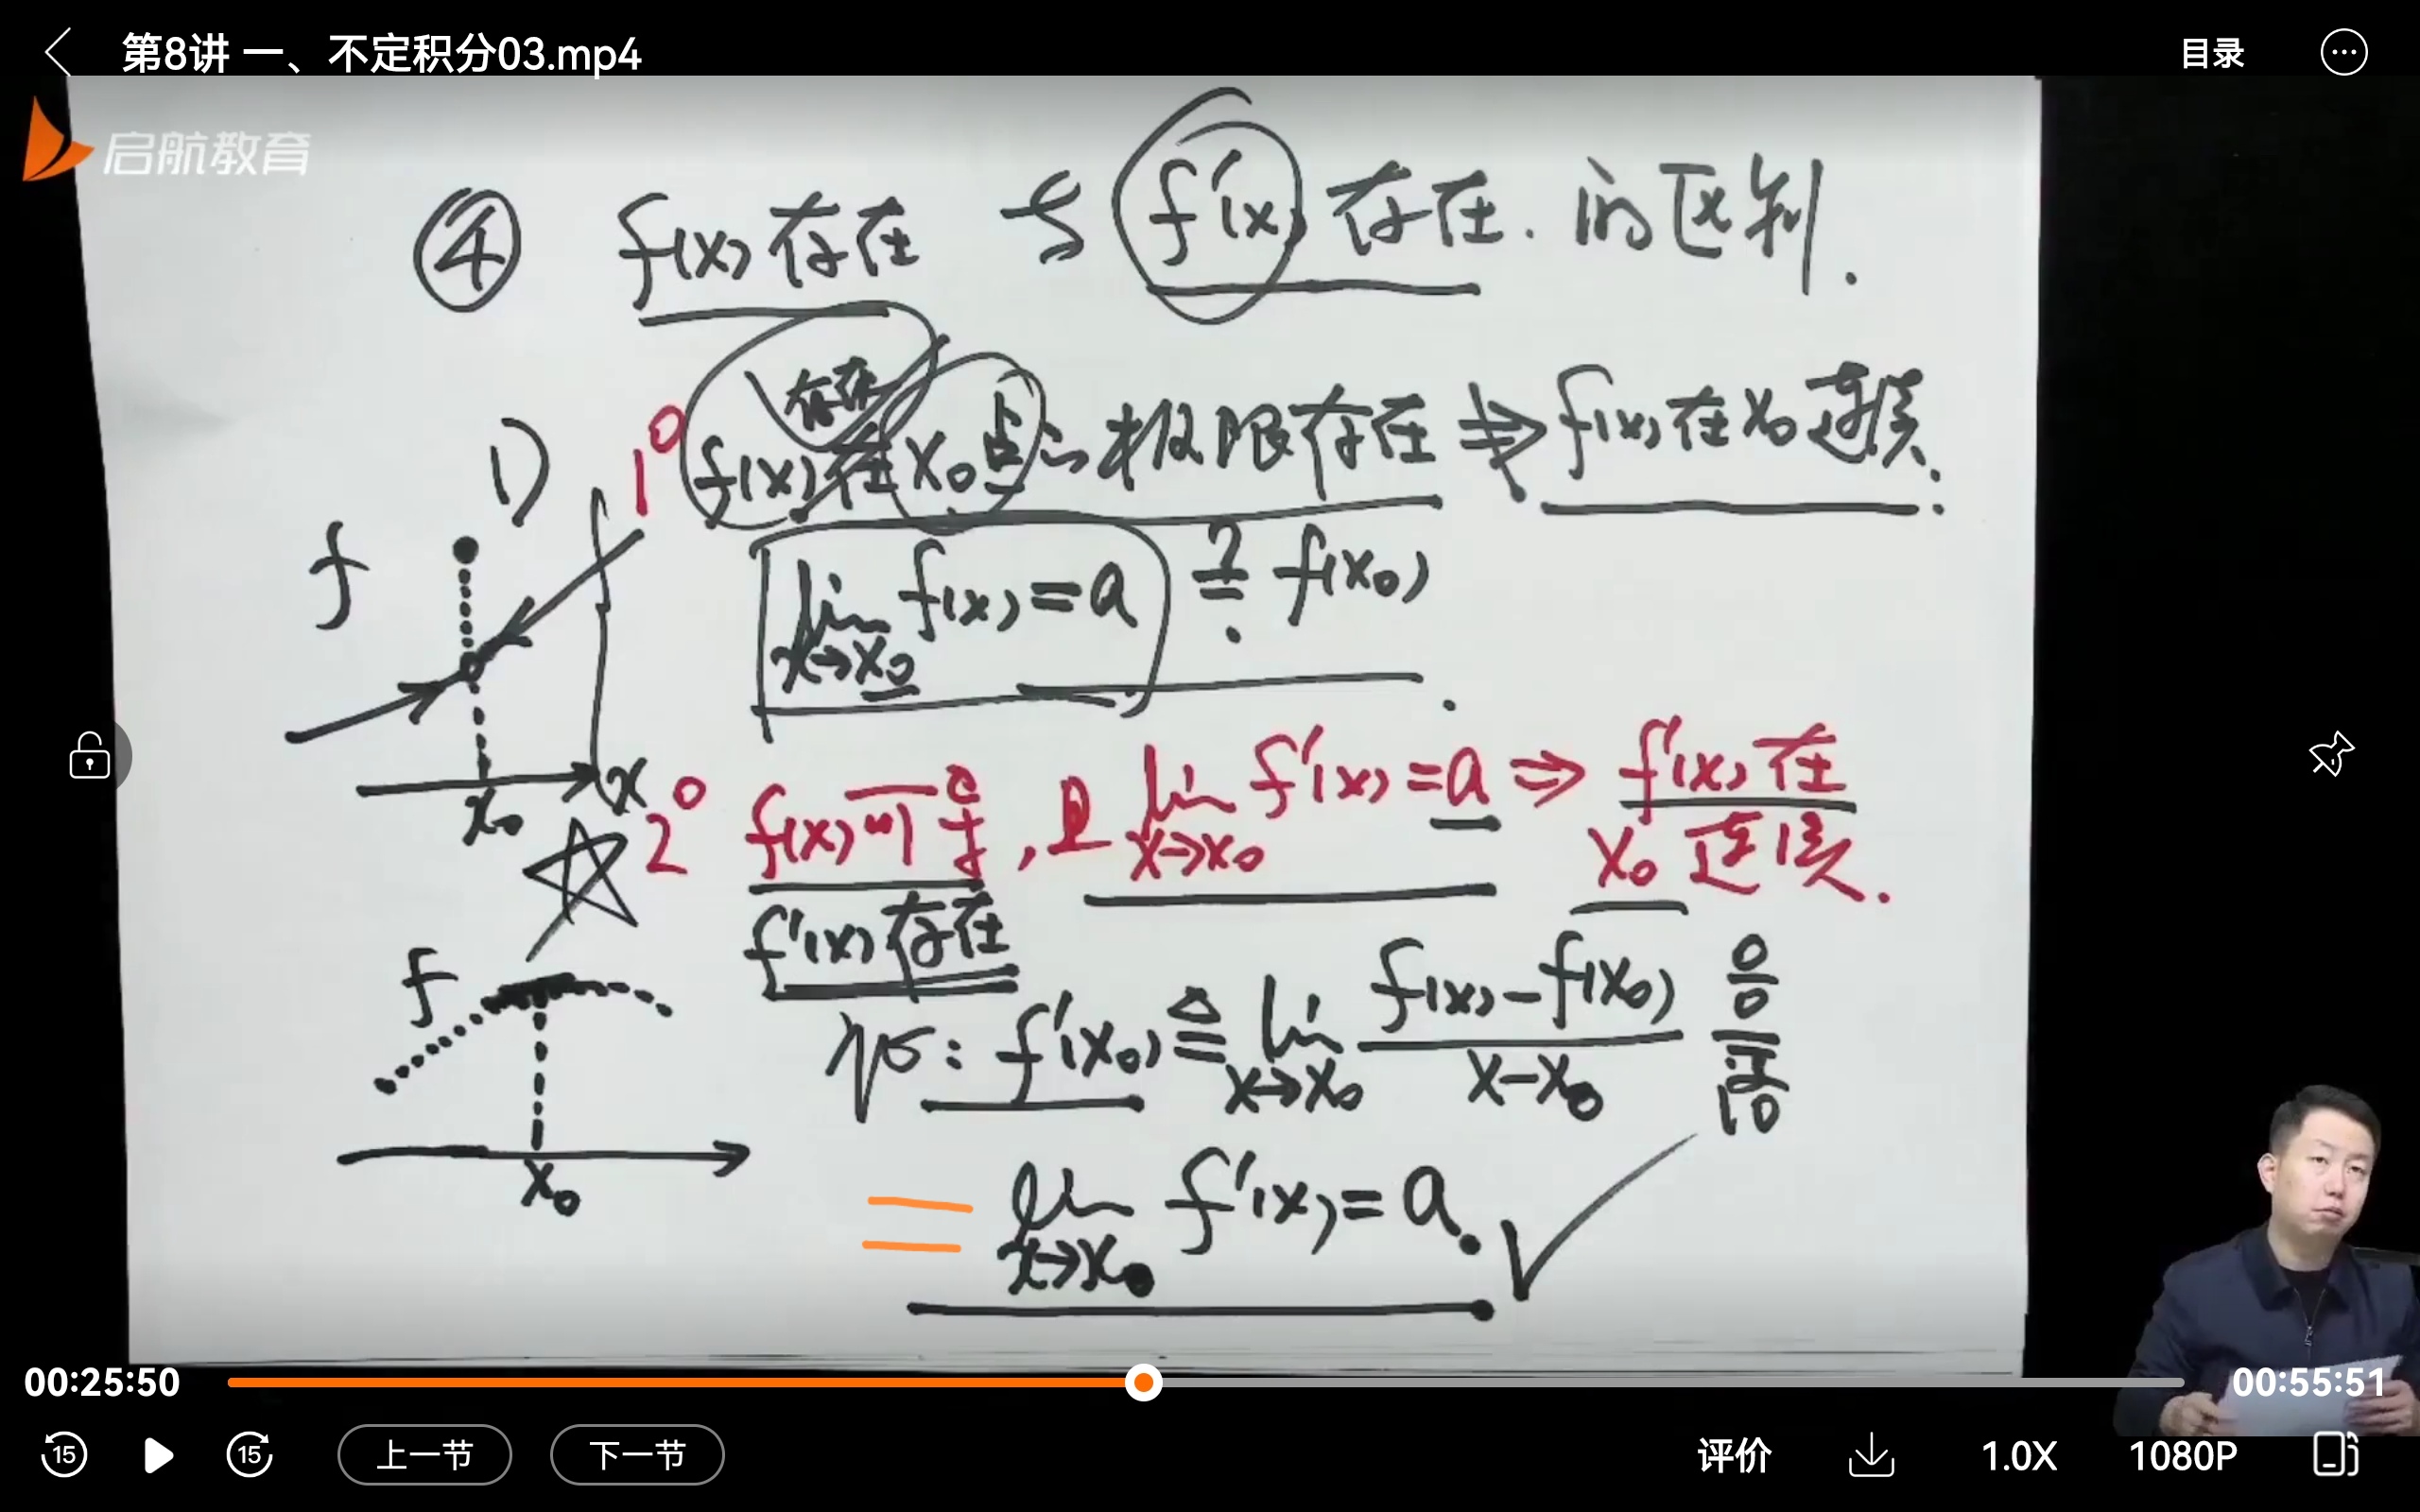 第8讲 一、不定积分03.mp4
目录
启航教育
④ f(x)存在 与 f'(x)存在.的区别.
存在
1) 1° f(x)在x₀点的极限存在 ⇏ f(x)在x₀连续.
f
lim x→x₀ f(x)=a ≟ f(x₀)
x
x₀
2° f(x)可导,且 lim x→x₀ f'(x)=a ⇒ f'(x)在
x₀连续.
f'(x)存在
f
f'(x₀) ≜ lim x→x₀ (f(x)-f(x₀))/(x-x₀) 0/0
洛
x₀
= lim x→x₀ f'(x)=a. ✓
00:25:50
00:55:51
15
15
上一节
下一节
评价
1.0X
1080P